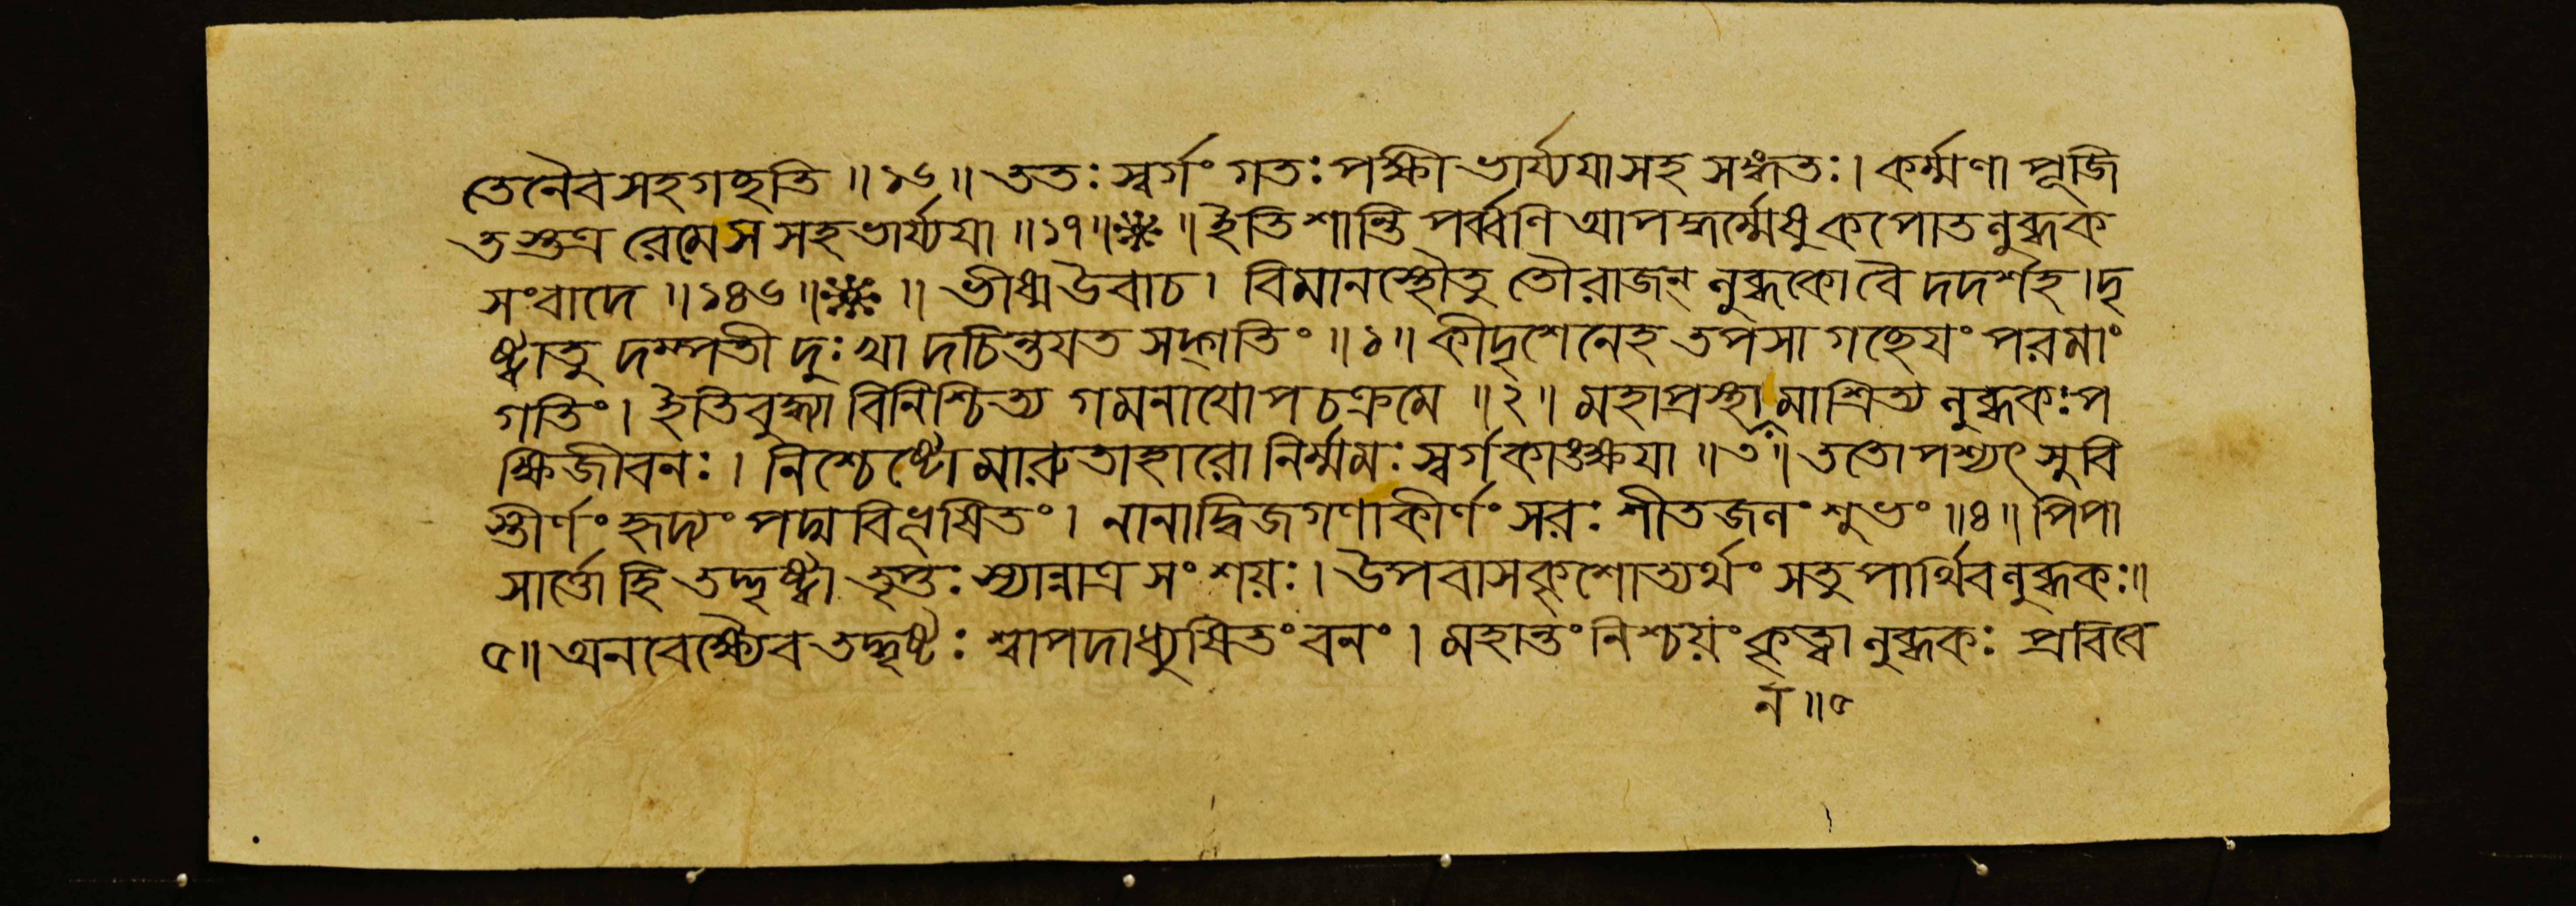 তেনৈব সহ গচ্ছতি ॥ ১৬ ॥ ততঃ স্বর্গং গতঃ পক্ষী ভার্য্যয়া সহ সঙ্গতঃ। কর্ম্মণা পূজি
তস্তত্র রেমে স সহ ভার্য্যয়া ॥ ১৭ ॥ ※ ॥ ইতি শান্তি পর্ব্বণি আপদ্ধর্ম্মেষু কপোত লুব্ধক
সংবাদে ॥ ১৪৬ ॥ ※ ॥ ভীষ্ম উবাচ। বিমানস্থৌ তু তৌ রাজন্ লুব্ধকো বৈ দদর্শ হ। দৃ
ষ্ট্বা তু দম্পতী দুঃখাদচিন্তয়ত সদ্গতিং ॥ ১ ॥ কীদৃশেনেহ তপসা গচ্ছেয়ং পরমাং
গতিং। ইতি বুদ্ধ্যা বিনিশ্চিত্য গমনায়োপচক্রমে ॥ ২ ॥ মহাপ্রস্থামাশ্রিত্য লুব্ধকঃ প
ক্ষিজীবনঃ। নিশ্চেষ্টো মারুতাহারো নির্ম্মমঃ স্বর্গকাঙ্ক্ষয়া ॥ ৩ ॥ ততোপশ্যৎ সুবি
স্তীর্ণং হৃদ্যং পদ্মবিভূষিতং। নানাদ্বিজগণাকীর্ণং সরঃ শীতজলং শুভং ॥ ৪ ॥ পিপা
সার্ত্তো হি তদ্দৃষ্ট্বা তৃপ্তঃ স্যান্নাত্র সংশয়ঃ। উপবাসকৃশোত্যর্থং স তু পার্থিব লুব্ধকঃ॥
৫ ॥ অনবেক্ষ্যৈব তদ্ধৃষ্টঃ শ্বাপদাধ্যুষিতং বনং। মহান্তং নিশ্চয়ং কৃত্বা লুব্ধকঃ প্রবিবে
ন ॥ ৫